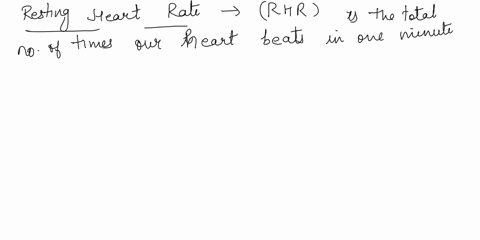 Resting Heart Rate → (RHR) is the total
no. of times our heart beats in one minute